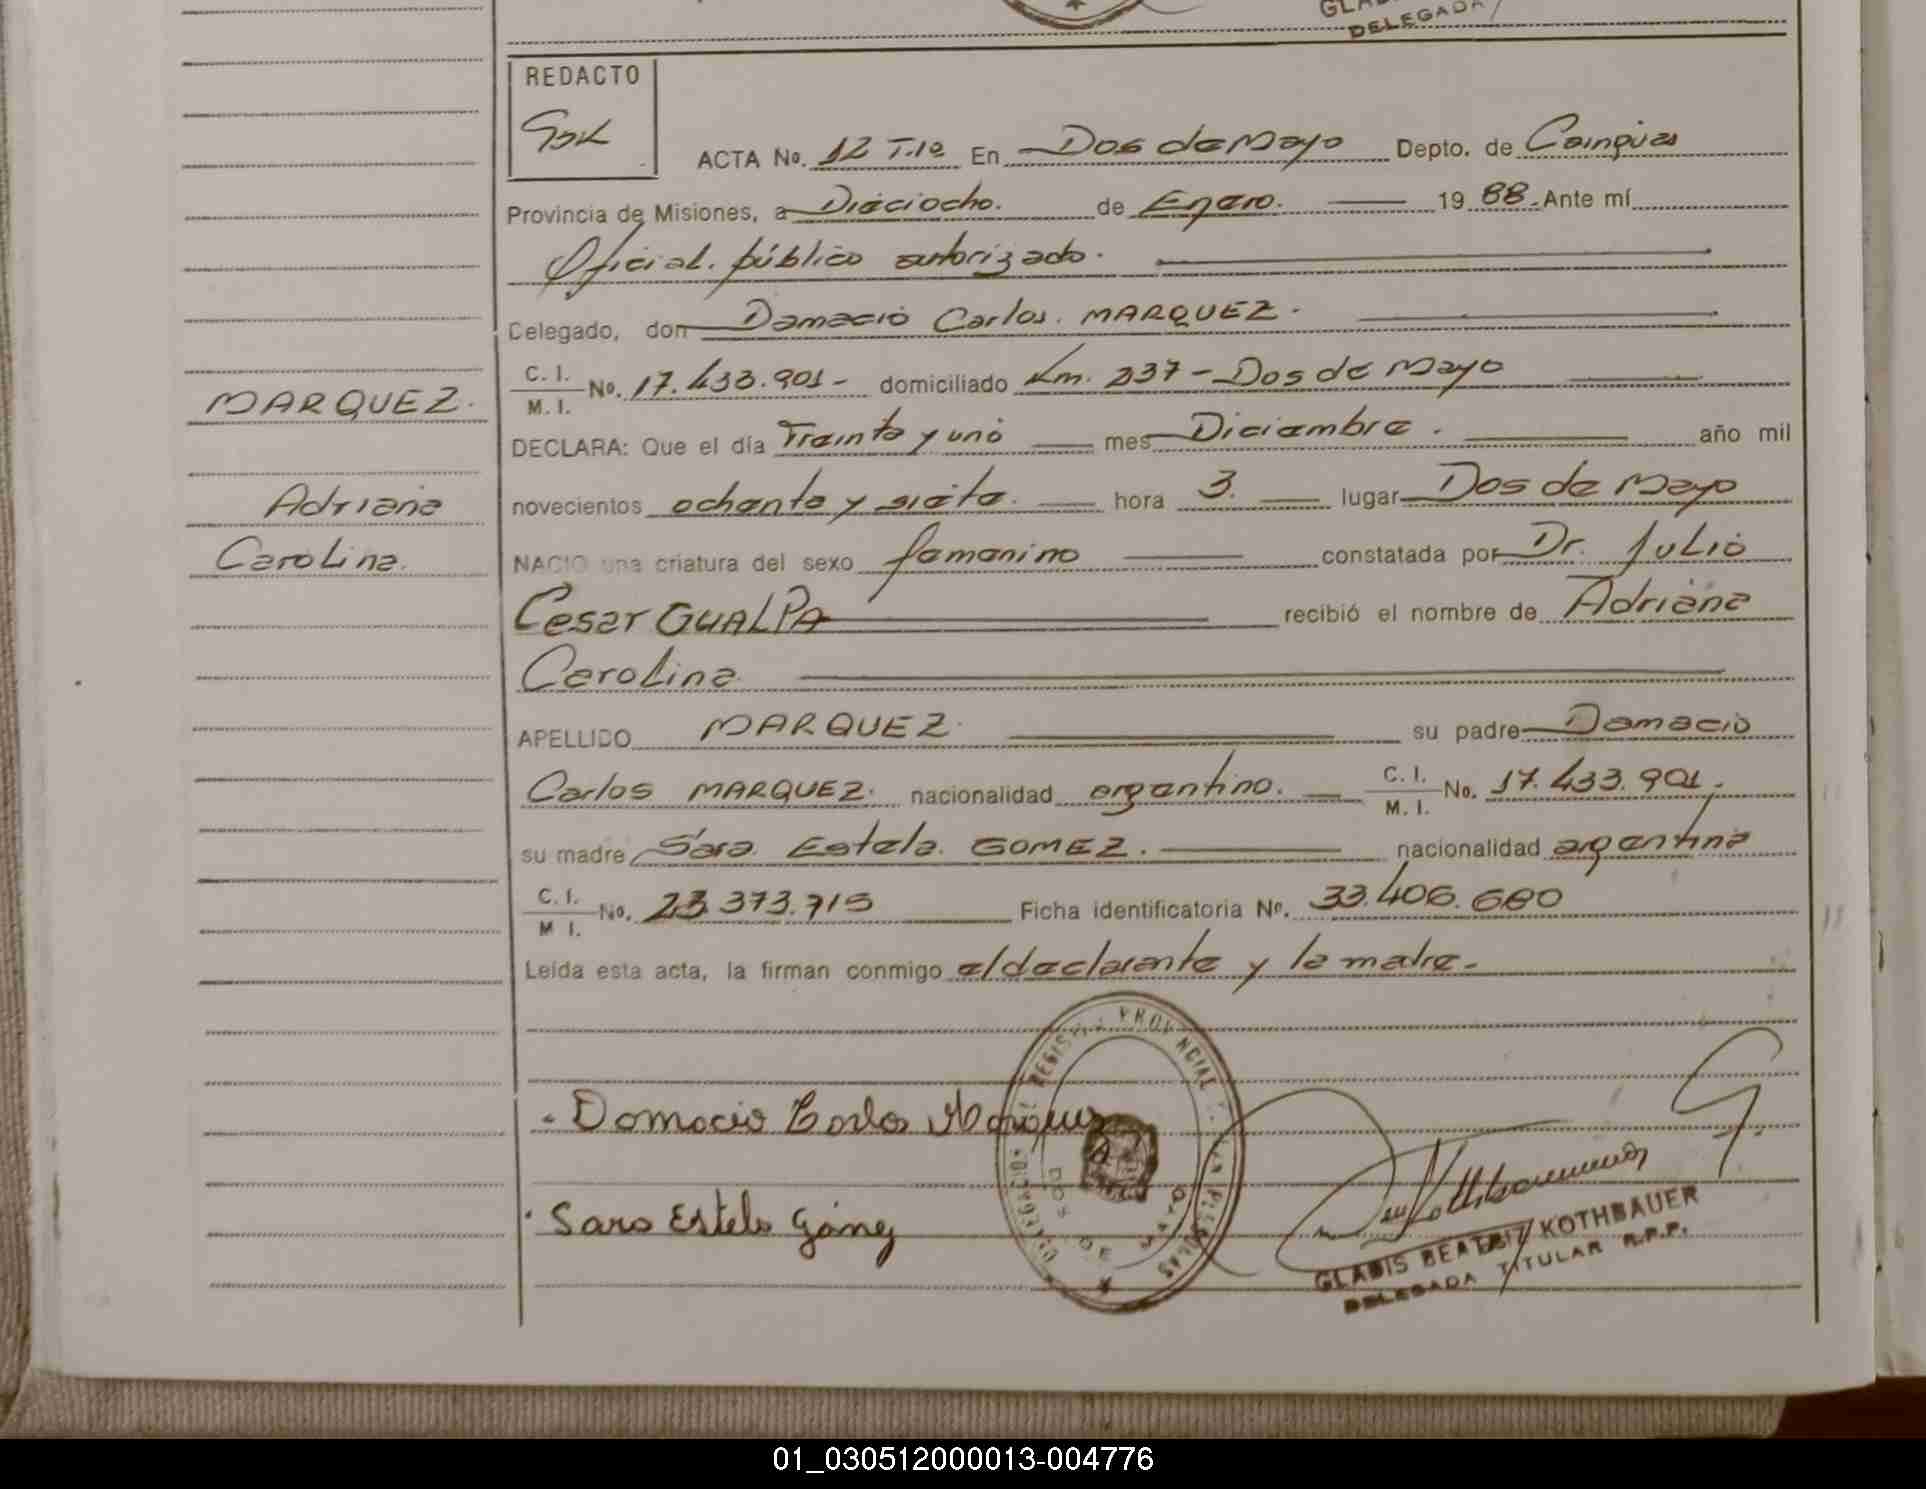 DELEGADA
REDACTO
ACTA No. 12 T.1º En Dos de Mayo Depto. de Cainguas
Provincia de Misiones, a Dieciocho. de Enero. 19 88. Ante mí
Oficial. público autorizado.
Celegado, don Damacio Carlos. MARQUEZ.
C. I.
M. I. No. 17.433.901- domiciliado Km. 237 - Dos de Mayo
MARQUEZ.
DECLARA: Que el día Treinta y uno mes Diciembre. año mil
novecientos ochenta y siete. hora 3. lugar Dos de Mayo
Adriana
NACIO una criatura del sexo femenino constatada por Dr. Julio
Carolina.
Cesar GUALPA recibió el nombre de Adriana
Carolina.
APELLIDO MARQUEZ. su padre Damacio
Carlos MARQUEZ. nacionalidad argentino. C. I.
M. I. No. 17.433.901.
su madre Sara Estela. GOMEZ. nacionalidad argentina
C. I.
M I. No. 23.373.715 Ficha identificatoria Nº. 33.406.680
Leída esta acta, la firman conmigo el declarante y la madre.-
REGISTRO PROVINCIAL DE LAS PERSONAS
DELEGACION
DOS DE MAYO
Damacio Carlos Marquez
Sara Estela Gómez
GLADIS BEATRIZ KOTHBAUER
DELEGADA TITULAR R.P.P.
01_030512000013-004776